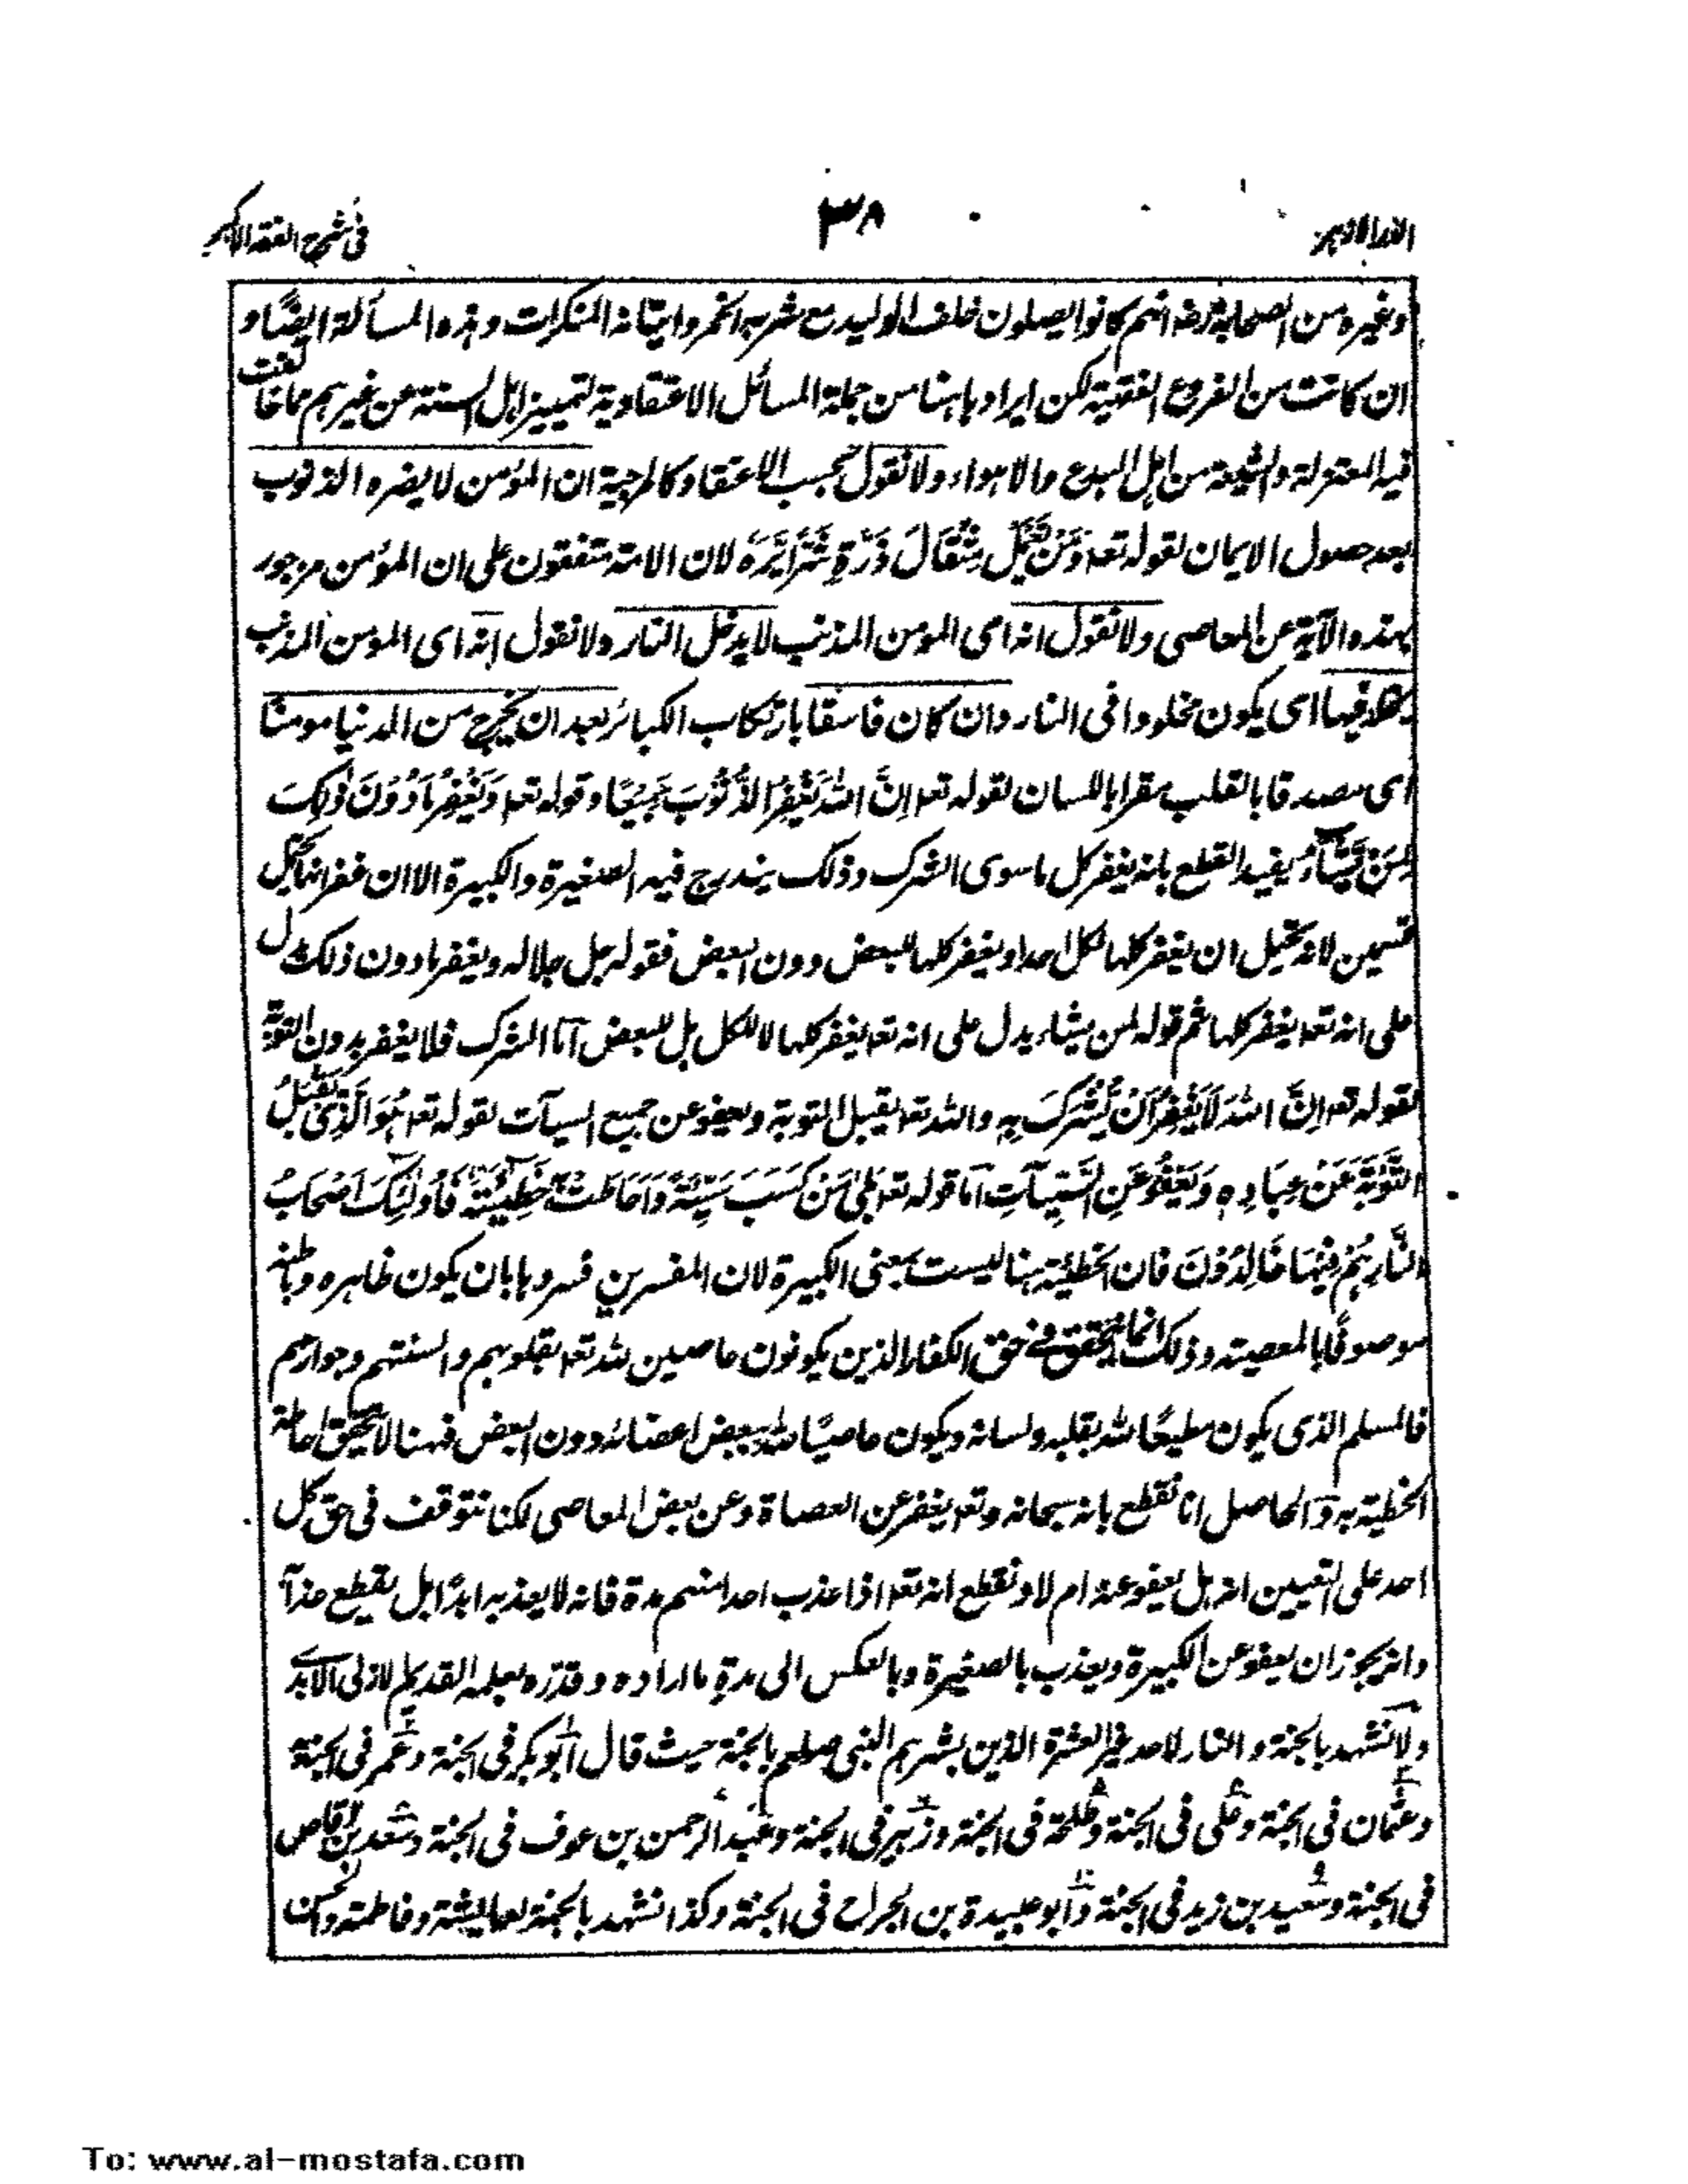 الدرالازهر
٣٨
فى شرح الفقه الاكبر
وغيره من الصحابة رضه انهم كانوا يصلون خلف الوليد مع شربه الخمر واتيانه المنكرات وهذه المسألة ايضًا و
ان كانت من الفروع الفقهية لكن ايرادها هنا من جملة المسائل الاعتقادية لتمييز اهل السنة عن غيرهم مما خالفت
فيه المعتزلة والشيعة من اهل البدع والاهواء ولا نقول بحسب الاعتقاد كالمرجية ان المؤمن لا يضره الذنوب
بعد حصول الايمان لقوله تعه وَمَنْ يَّعْمَلْ مِثْقَالَ ذَرَّةٍ شَرًّا يَّرَهٗ لان الامة متفقون على ان المؤمن مزجور
بهذه الآية عن المعاصى ولا نقول انه اى المومن المذنب لا يدخل النار ولا نقول انه اى المومن المذنب
يخلد فيها اى يكون مخلدا فى النار وان كان فاسقا بارتكاب الكبائر بعد ان يخرج من الدنيا مومنًا
اى مصدقا بالقلب مقرا باللسان لقوله تعه اِنَّ اللّٰهَ يَغْفِرُ الذُّنُوْبَ جَمِيْعًا وقوله تعه وَيَغْفِرُ مَا دُوْنَ ذٰلِكَ
لِمَنْ يَّشَآءُ يفيد القطع بانه يغفر كل ما سوى الشرك وذلك يندرج فيه الصغيرة والكبيرة الا ان غفرانها يحتمل
قسمين لانه يحتمل ان يغفر كلها لكل احد او يغفر كلها للبعض دون البعض فقوله جل جلاله ويغفر ما دون ذلك يدل
على انه تعه يغفر كلها ثم قوله لمن يشاء يدل على انه تعه يغفر كلها لا للكل بل للبعض اَمّا الشرك فلا يغفر بدون التوبة
لقوله تعه اِنَّ اللّٰهَ لَا يَغْفِرُ اَنْ يُّشْرَكَ بِهٖ والله تعه يقبل التوبة ويعفو عن جميع السيآت لقوله تعه هُوَ الَّذِيْ يَقْبَلُ
التَّوْبَةَ عَنْ عِبَادِهٖ وَيَعْفُوْ عَنِ السَّيِّئَاٰتِ اَمّا قوله تعه بَلٰى مَنْ كَسَبَ سَيِّئَةً وَّاَحَاطَتْ بِهٖ خَطِيْٓئَتُهٗ فَاُولٰٓئِكَ اَصْحَابُ
النَّارِ هُمْ فِيْهَا خَالِدُوْنَ فان الخطيئة هنا ليست بمعنى الكبيرة لان المفسرين فسروها بان يكون ظاهره وباطنه
موصوفًا بالمعصية وذلك انما يتحقق فى حق الكفار الذين يكونون عاصين لله تعه بقلوبهم والسنتهم وجوارحهم
فالمسلم الذى يكون مطيعًا لله بقلبه ولسانه ويكون عاصيًا لله ببعض اعضائه دون البعض فهنا لا يتحقق احاطة
الخطية به وَالحاصل انا نقطع بانه سبحانه وتعه يغفر عن العصاة وعن بعض المعاصى لكنا نتوقف فى حق كل
احد على التعيين انه هل يعفو عنه ام لا ونقطع انه تعه اذا عذب احدا منهم مدة فانه لا يعذبه ابدًا بل يقطع عذابه
وانه يجوز ان يعفو عن الكبيرة ويعذب بالصغيرة وبالعكس الى مدةٍ ما اراده وقدره بعلمه القديم الازلى الابدى
ولا نشهد بالجنة والنار لاحد غير العشرة الذين بشرهم النبى صلعم بالجنة حيث قال ابو بكر فى الجنة وعمر فى الجنة
وعثمان فى الجنة وعلى فى الجنة وطلحة فى الجنة وزبير فى الجنة وعبد الرحمن بن عوف فى الجنة وسعد بن وقاص
فى الجنة وسعيد بن زيد فى الجنة وابو عبيدة بن الجراح فى الجنة وكذا نشهد بالجنة لعايشة وفاطمة والحسن
To: www.al-mostafa.com